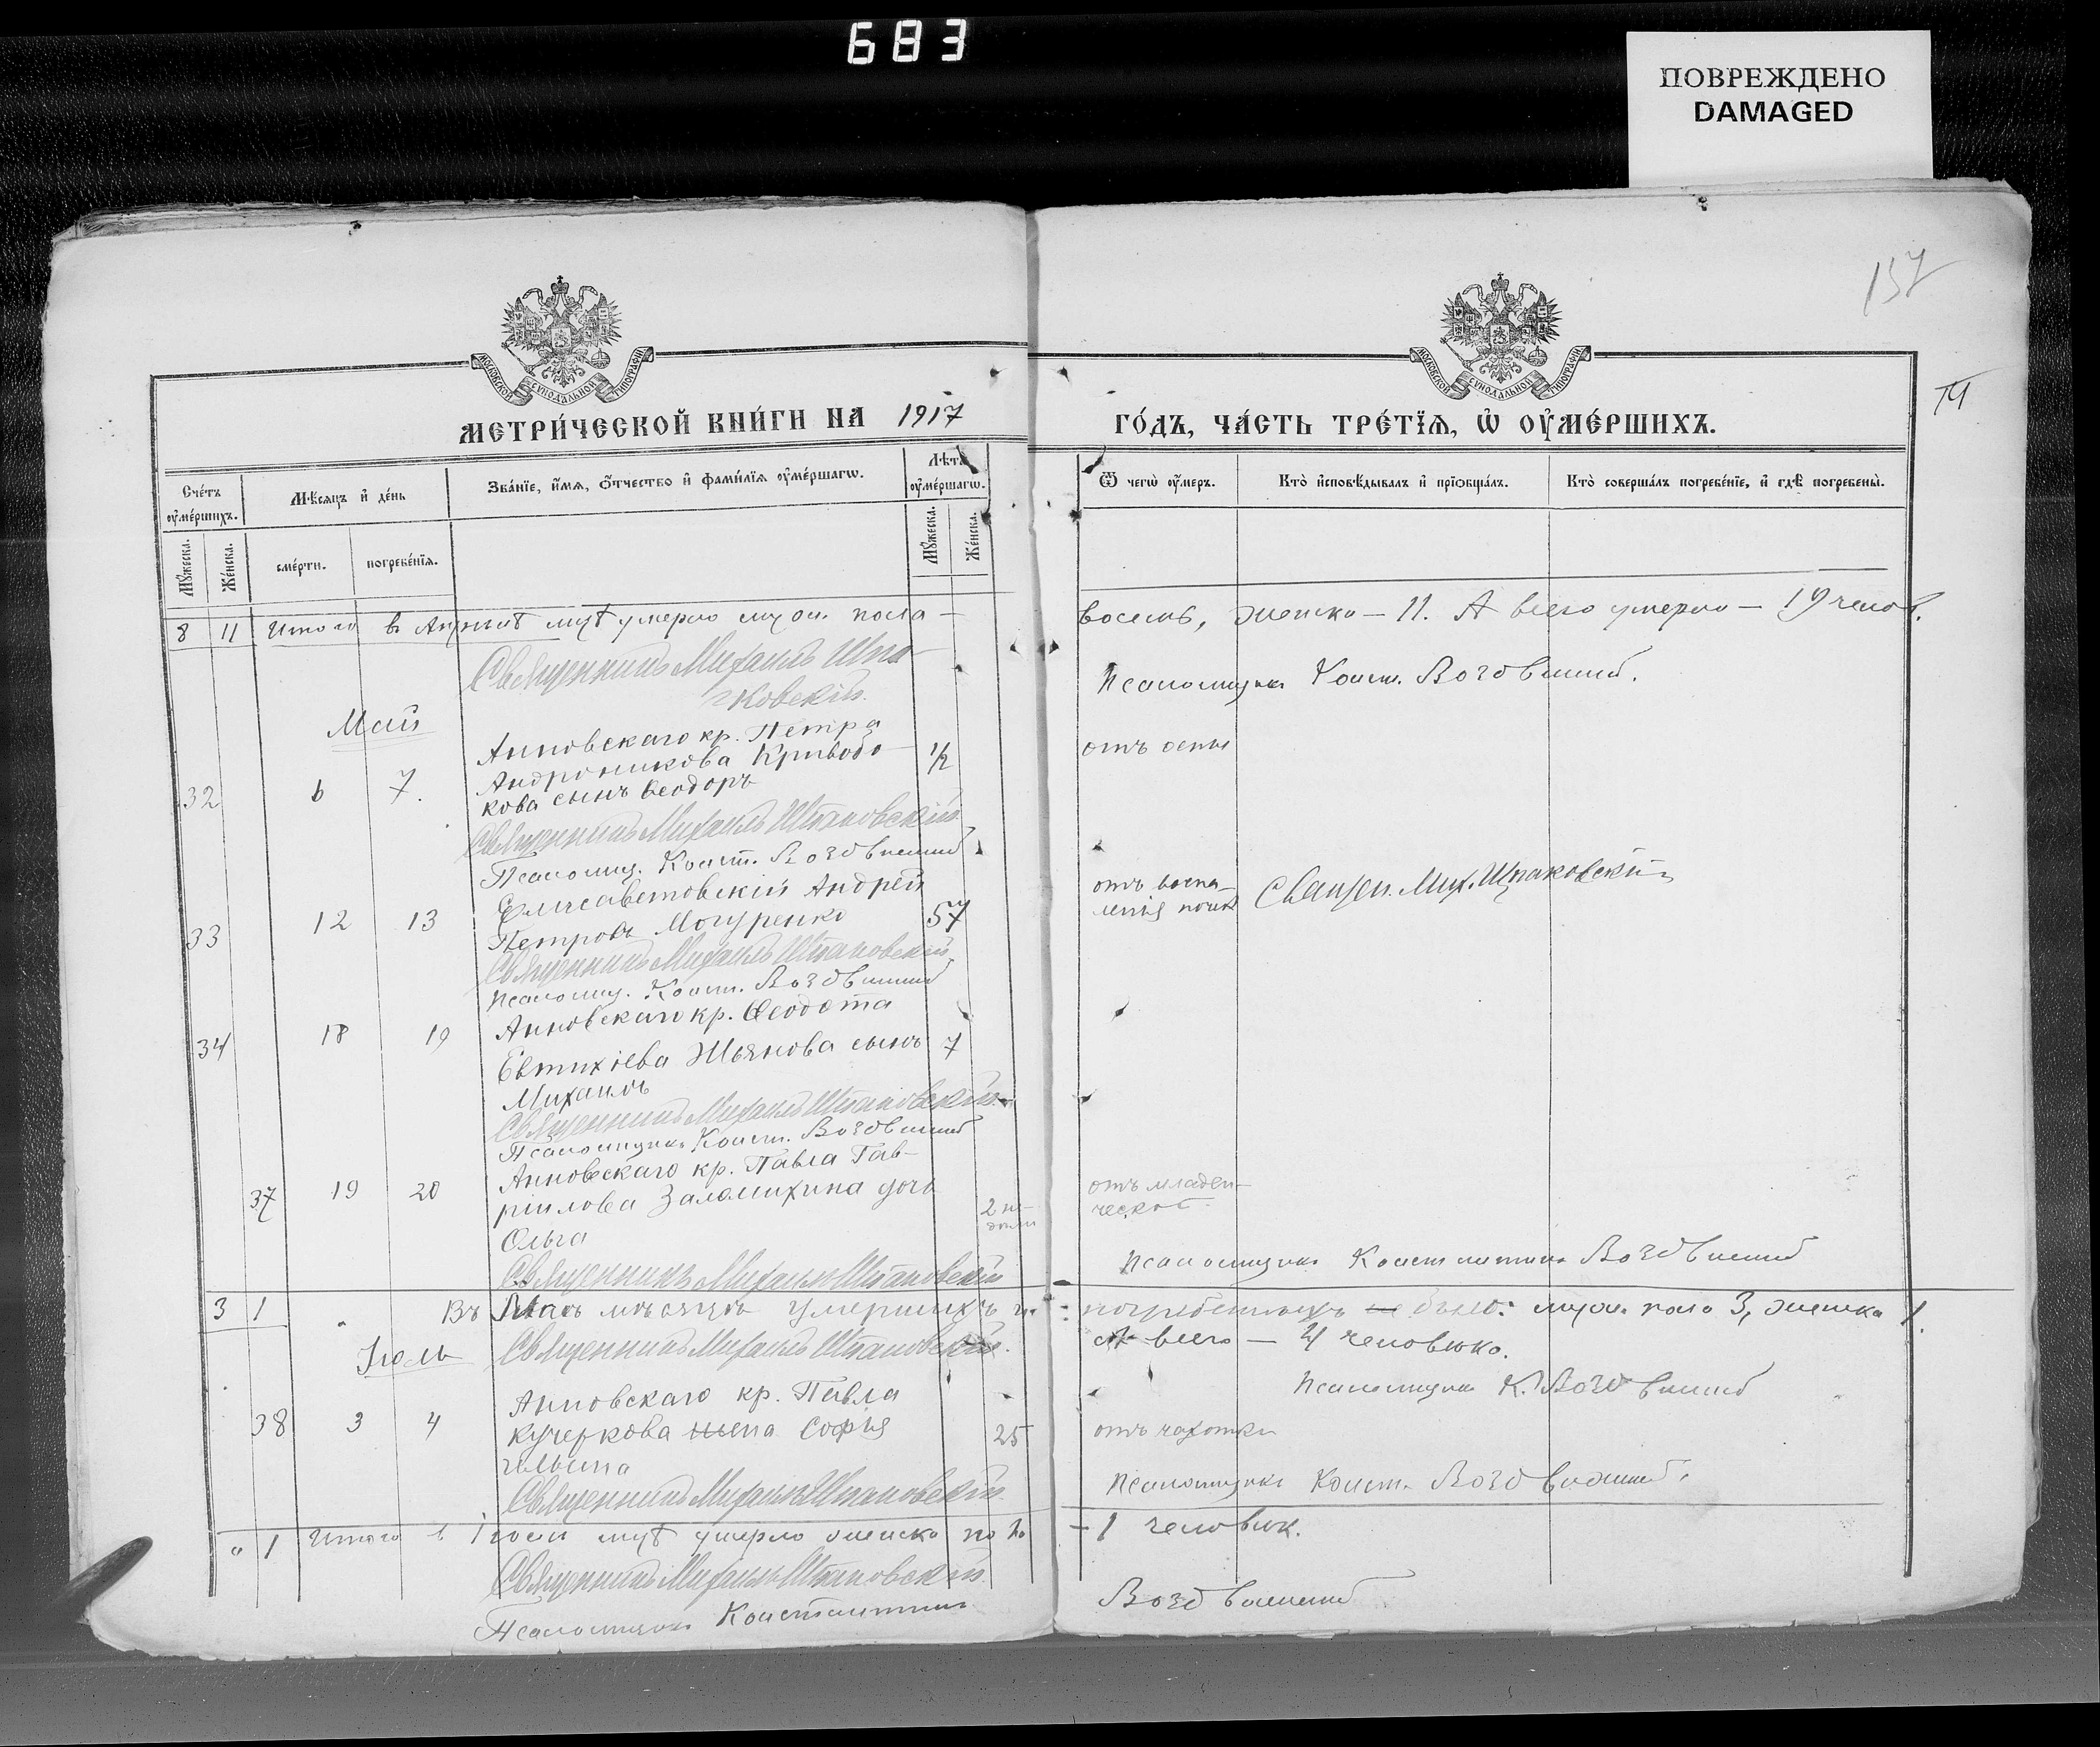 683
ПОВРЕЖДЕНО
DAMAGED
137
МОСКОВСКОЙ СѴНОДАЛЬНОЙ ТИПОГРАФІИ
МОСКОВСКОЙ СѴНОДАЛЬНОЙ ТИПОГРАФІИ
МЕТРИ́ЧЕСКОЙ КНИ́ГИ НА 1917
ГО́ДЪ, ЧА́СТЬ ТРЕ́ТЇѦ, Ѡ҆ ОУ҆МЕ́РШИХЪ.
Сче́тъ оу҆ме́ршихъ.
Мѣ́сѧцъ и҆ де́нь
Зва́нїе, и҆́мѧ, ѻ҆́тчество и҆ фами́лїѧ оу҆ме́ршагѡ.
Лѣ́та оу҆ме́ршагѡ.
Ѿ чегѡ̀ оу҆́меръ.
Кто̀ и҆сповѣ́дывалъ и҆ прїѻбща́лъ.
Кто̀ соверша́лъ погребе́нїе, и҆ гдѣ̀ погребены̀.
Мꙋ́жеска.
Же́нска.
сме́рти.
погребе́нїѧ.
Мꙋ́жеска.
Же́нска.
8 11 Итого в Апрѣлѣ мцѣ умерло муж. пола —
восемь, женска — 11. А всего умерло — 19 челов.
Священникъ Михаилъ Шпа-
ковскій.
Псаломщикъ Конст. Воздвиженскій.
Май
32 6 7. Анновскаго кр. Петра
Андроникова Криводо-
кова сынъ Ѳеодоръ
1/2 отъ оспы
Священникъ Михаилъ Шпаковскій.
Псаломщ. Конст. Воздвиженскій
33 12 13 Елисаветовскій Андрей
Петровъ Могуренко 57
отъ воспа-
ленія почек
Священ. Мих. Шпаковскій
Священникъ Михаилъ Шпаковскій
Псаломщ. Конст. Воздвиженскій
34 18 19 Анновскаго кр. Ѳеодота
Евтихіева Ильянова сынъ 7
Михаилъ
Священникъ Михаилъ Шпаковскій.
Псаломщикъ Конст. Воздвиженскій
37 19 20 Анновскаго кр. Павла Гав-
ріилова Заломихина дочь
Ольга
2 не-
дѣли
отъ младен-
ческой
Священникъ Михаилъ Шпаковскій
Псаломщикъ Константинъ Воздвиженскій
3 1 Въ Маѣ мѣсяцѣ умершихъ и
погребенныхъ было: муж. пола 3, женска 1.
А всего — 4 человѣка.
Священникъ Михаилъ Шпаковскій.
Псаломщикъ К. Воздвиженскій
Іюль
38 3 4 Анновскаго кр. Павла
Кучеркова жена Софія
25 отъ чахотки
Священникъ Михаилъ Шпаковскій.
Псаломщикъ Конст. Воздвиженскій.
" 1 Итого в Іюлѣ мцѣ умерло женска пола
— 1 человѣк.
Священникъ Михаилъ Шпаковскій.
Псаломщикъ Константинъ Воздвиженскій